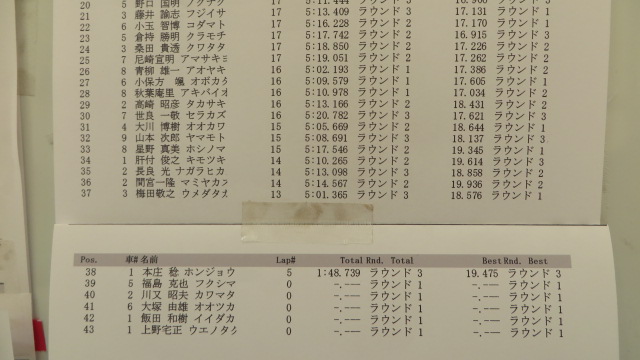 20 5 野口 国明 ノグチク 17 5:11.444 ラウンド 3 16.960 ラウンド 3
21 3 藤井 諭志 フジイサ 17 5:13.409 ラウンド 3 17.131 ラウンド 1
22 6 小玉 智博 コダマト 17 5:16.228 ラウンド 2 17.170 ラウンド 1
23 5 倉持 勝明 クラモチ 17 5:17.742 ラウンド 2 16.915 ラウンド 3
24 3 桑田 貴透 クワタタ 17 5:18.850 ラウンド 2 17.226 ラウンド 2
25 7 尼崎宣明 アマサキ 17 5:19.051 ラウンド 2 17.262 ラウンド 2
26 8 青柳 雄一 アオヤギ 16 5:02.193 ラウンド 1 17.386 ラウンド 2
27 6 小保方 颯 オボカタ 16 5:09.579 ラウンド 1 17.605 ラウンド 1
28 8 秋葉庵里 アキバイオ 16 5:10.978 ラウンド 1 17.034 ラウンド 2
29 2 高崎 昭彦 タカサキ 16 5:13.166 ラウンド 2 18.431 ラウンド 2
30 7 世良 一敬 セラカズ 16 5:20.782 ラウンド 3 17.621 ラウンド 3
31 4 大川 博樹 オオカワ 15 5:05.669 ラウンド 2 18.644 ラウンド 1
32 9 山本 次郎 ヤマモト 15 5:08.691 ラウンド 3 18.137 ラウンド 3
33 8 星野 真美 ホシノマ 15 5:17.546 ラウンド 2 19.345 ラウンド 1
34 1 肝付 俊之 キモツキ 14 5:10.265 ラウンド 2 19.614 ラウンド 3
35 2 長良 光 ナガラヒカ 14 5:13.098 ラウンド 3 18.858 ラウンド 2
36 2 間宮一隆 マミヤカズ 14 5:14.567 ラウンド 2 19.936 ラウンド 2
37 3 梅田敬之 ウメダタカ 13 5:01.365 ラウンド 3 18.576 ラウンド 1
Pos. 車# 名前 Lap# Total Rnd. Total Best Rnd. Best
38 1 本庄 稔 ホンジョウ 5 1:48.739 ラウンド 3 19.475 ラウンド 3
39 5 福島 克也 フクシマ 0 -.--- ラウンド 1 -.--- ラウンド 1
40 2 川又 昭夫 カワマタ 0 -.--- ラウンド 1 -.--- ラウンド 1
41 6 大塚 由雄 オオツカ 0 -.--- ラウンド 1 -.--- ラウンド 1
42 1 飯田 和樹 イイダカ 0 -.--- ラウンド 1 -.--- ラウンド 1
43 1 上野宅正 ウエノタク 0 -.--- ラウンド 1 -.--- ラウンド 1